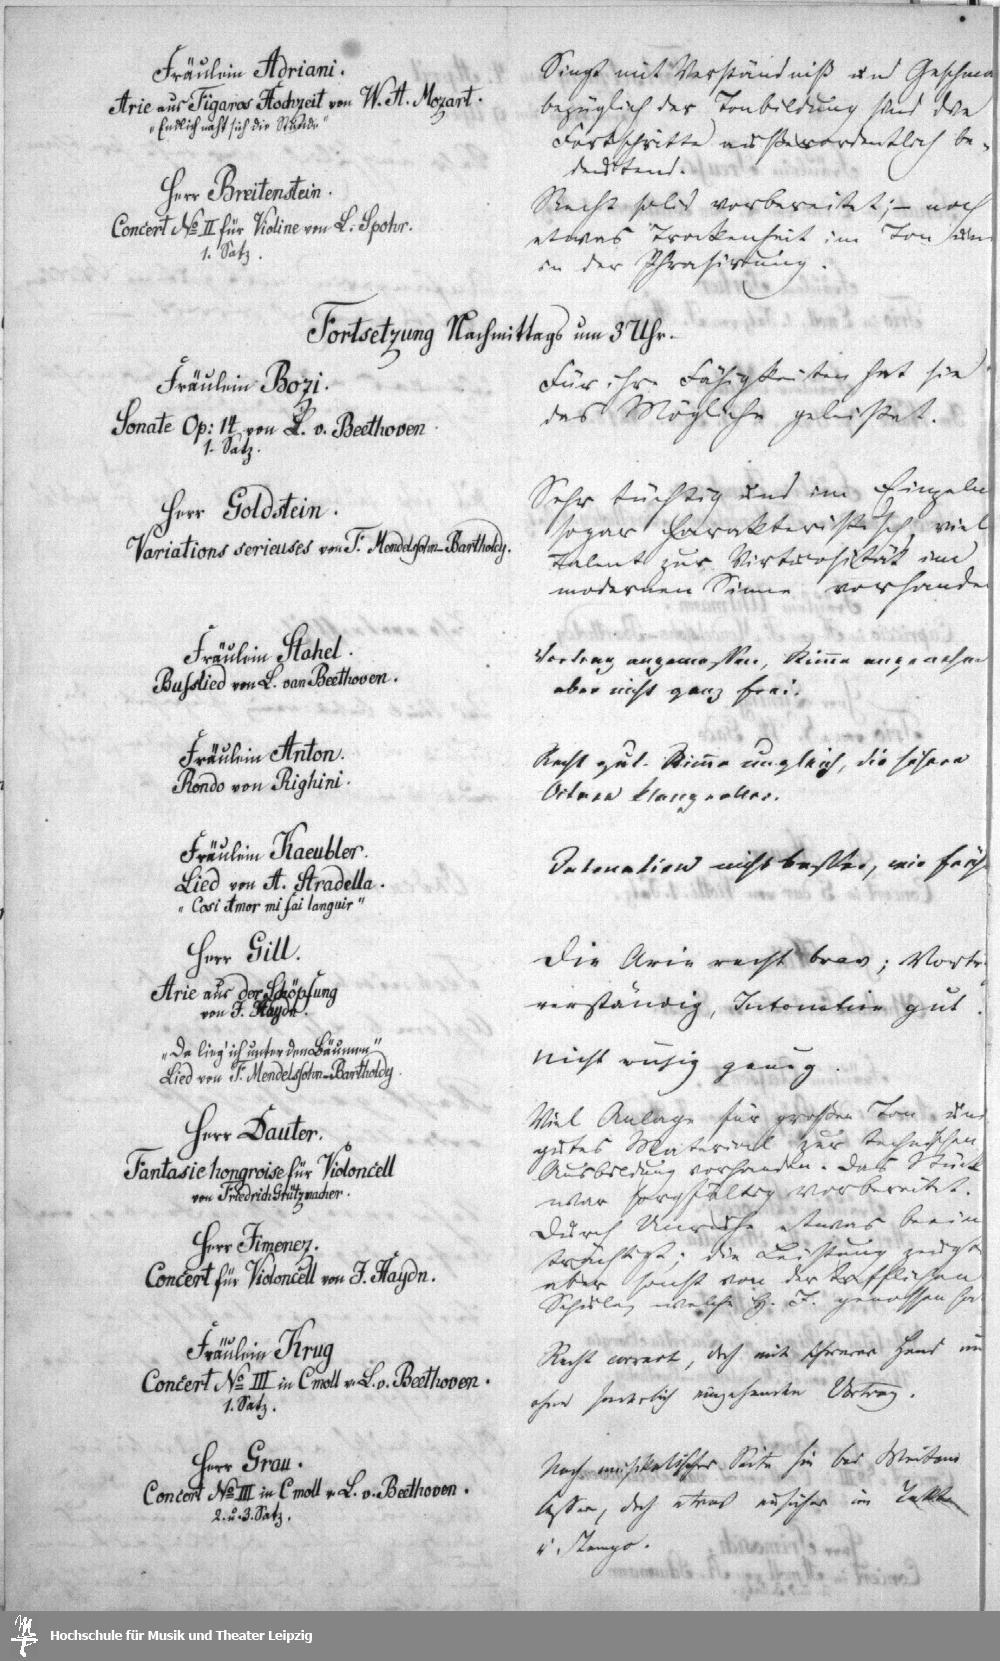 Fräulein Adriani.
Arie aus Figaros Hochzeit von W. A. Mozart.
"Endlich naht sich die Stunde"
Singt mit Verständniß und Geschma
bezüglich der Tonbildung sind die
Fortschritte außerordentlich be-
deutend.
Herr Breitenstein.
Concert No II für Violine von L. Spohr.
1. Satz.
Recht solid vorbereitet; – noch
etwas Trockenheit im Ton und
in der Phrasirung.
Fortsetzung Nachmittags um 3 Uhr.
Fräulein Bozi.
Sonate Op: 14 von L. v. Beethoven
1. Satz.
Für ihre Fähigkeiten hat sie
das Mögliche geleistet.
Herr Goldstein.
Variations serieuses von F. Mendelssohn-Bartholdy.
Sehr tüchtig und im Einzeln
sogar charakteristisch, viel
Talent zur Virtuosität im
modernen Sinne vorhanden
Fräulein Stahel.
Busslied von L. van Beethoven.
Vortrag angemessen, Stimme angenehm
aber nicht ganz frei.
Fräulein Anton.
Rondo von Righini.
Recht gut. Stimme ungleich, die höhere
Octave klangvoller.
Fräulein Kaeubler.
Lied von A. Stradella.
"Cosi Amor mi fai languir"
Intonation nicht besser, wie früh
Herr Gill.
Arie aus der Schöpfung
von J. Haydn.
Die Arie recht brav; Vortr
verständig, Intonation gut.
"Da lieg' ich unter den Bäumen"
Lied von F. Mendelssohn-Bartholdy.
nicht ruhig genug.
Herr Dauter.
Fantasie hongroise für Violoncell
von Friedrich Grützmacher.
Viel Anlage für großen Ton und
gutes Material zur technischen
Ausbildung vorhanden. Das Stück
war sorgfältig vorbereitet.
Herr Jimenez.
Concert für Violoncell von J. Haydn.
Durch Unruhe etwas beein
trächtigt; die Leistung zeugt
aber sonst von der trefflichen
Schule, welche H. J. genossen ha
Fräulein Krug
Concert No III in C moll v. L. v. Beethoven.
1. Satz.
Recht correct, doch mit schwerer Hand un
ohne sonderlich eingehenden Vortrag.
Herr Grau.
Concert No III in C moll v. L. v. Beethoven.
2. u. 3. Satz.
Nach musikalischer Seite hin bei Weitem
besser, doch etwas unsicher im Takte
u. Tempo.
Hochschule für Musik und Theater Leipzig